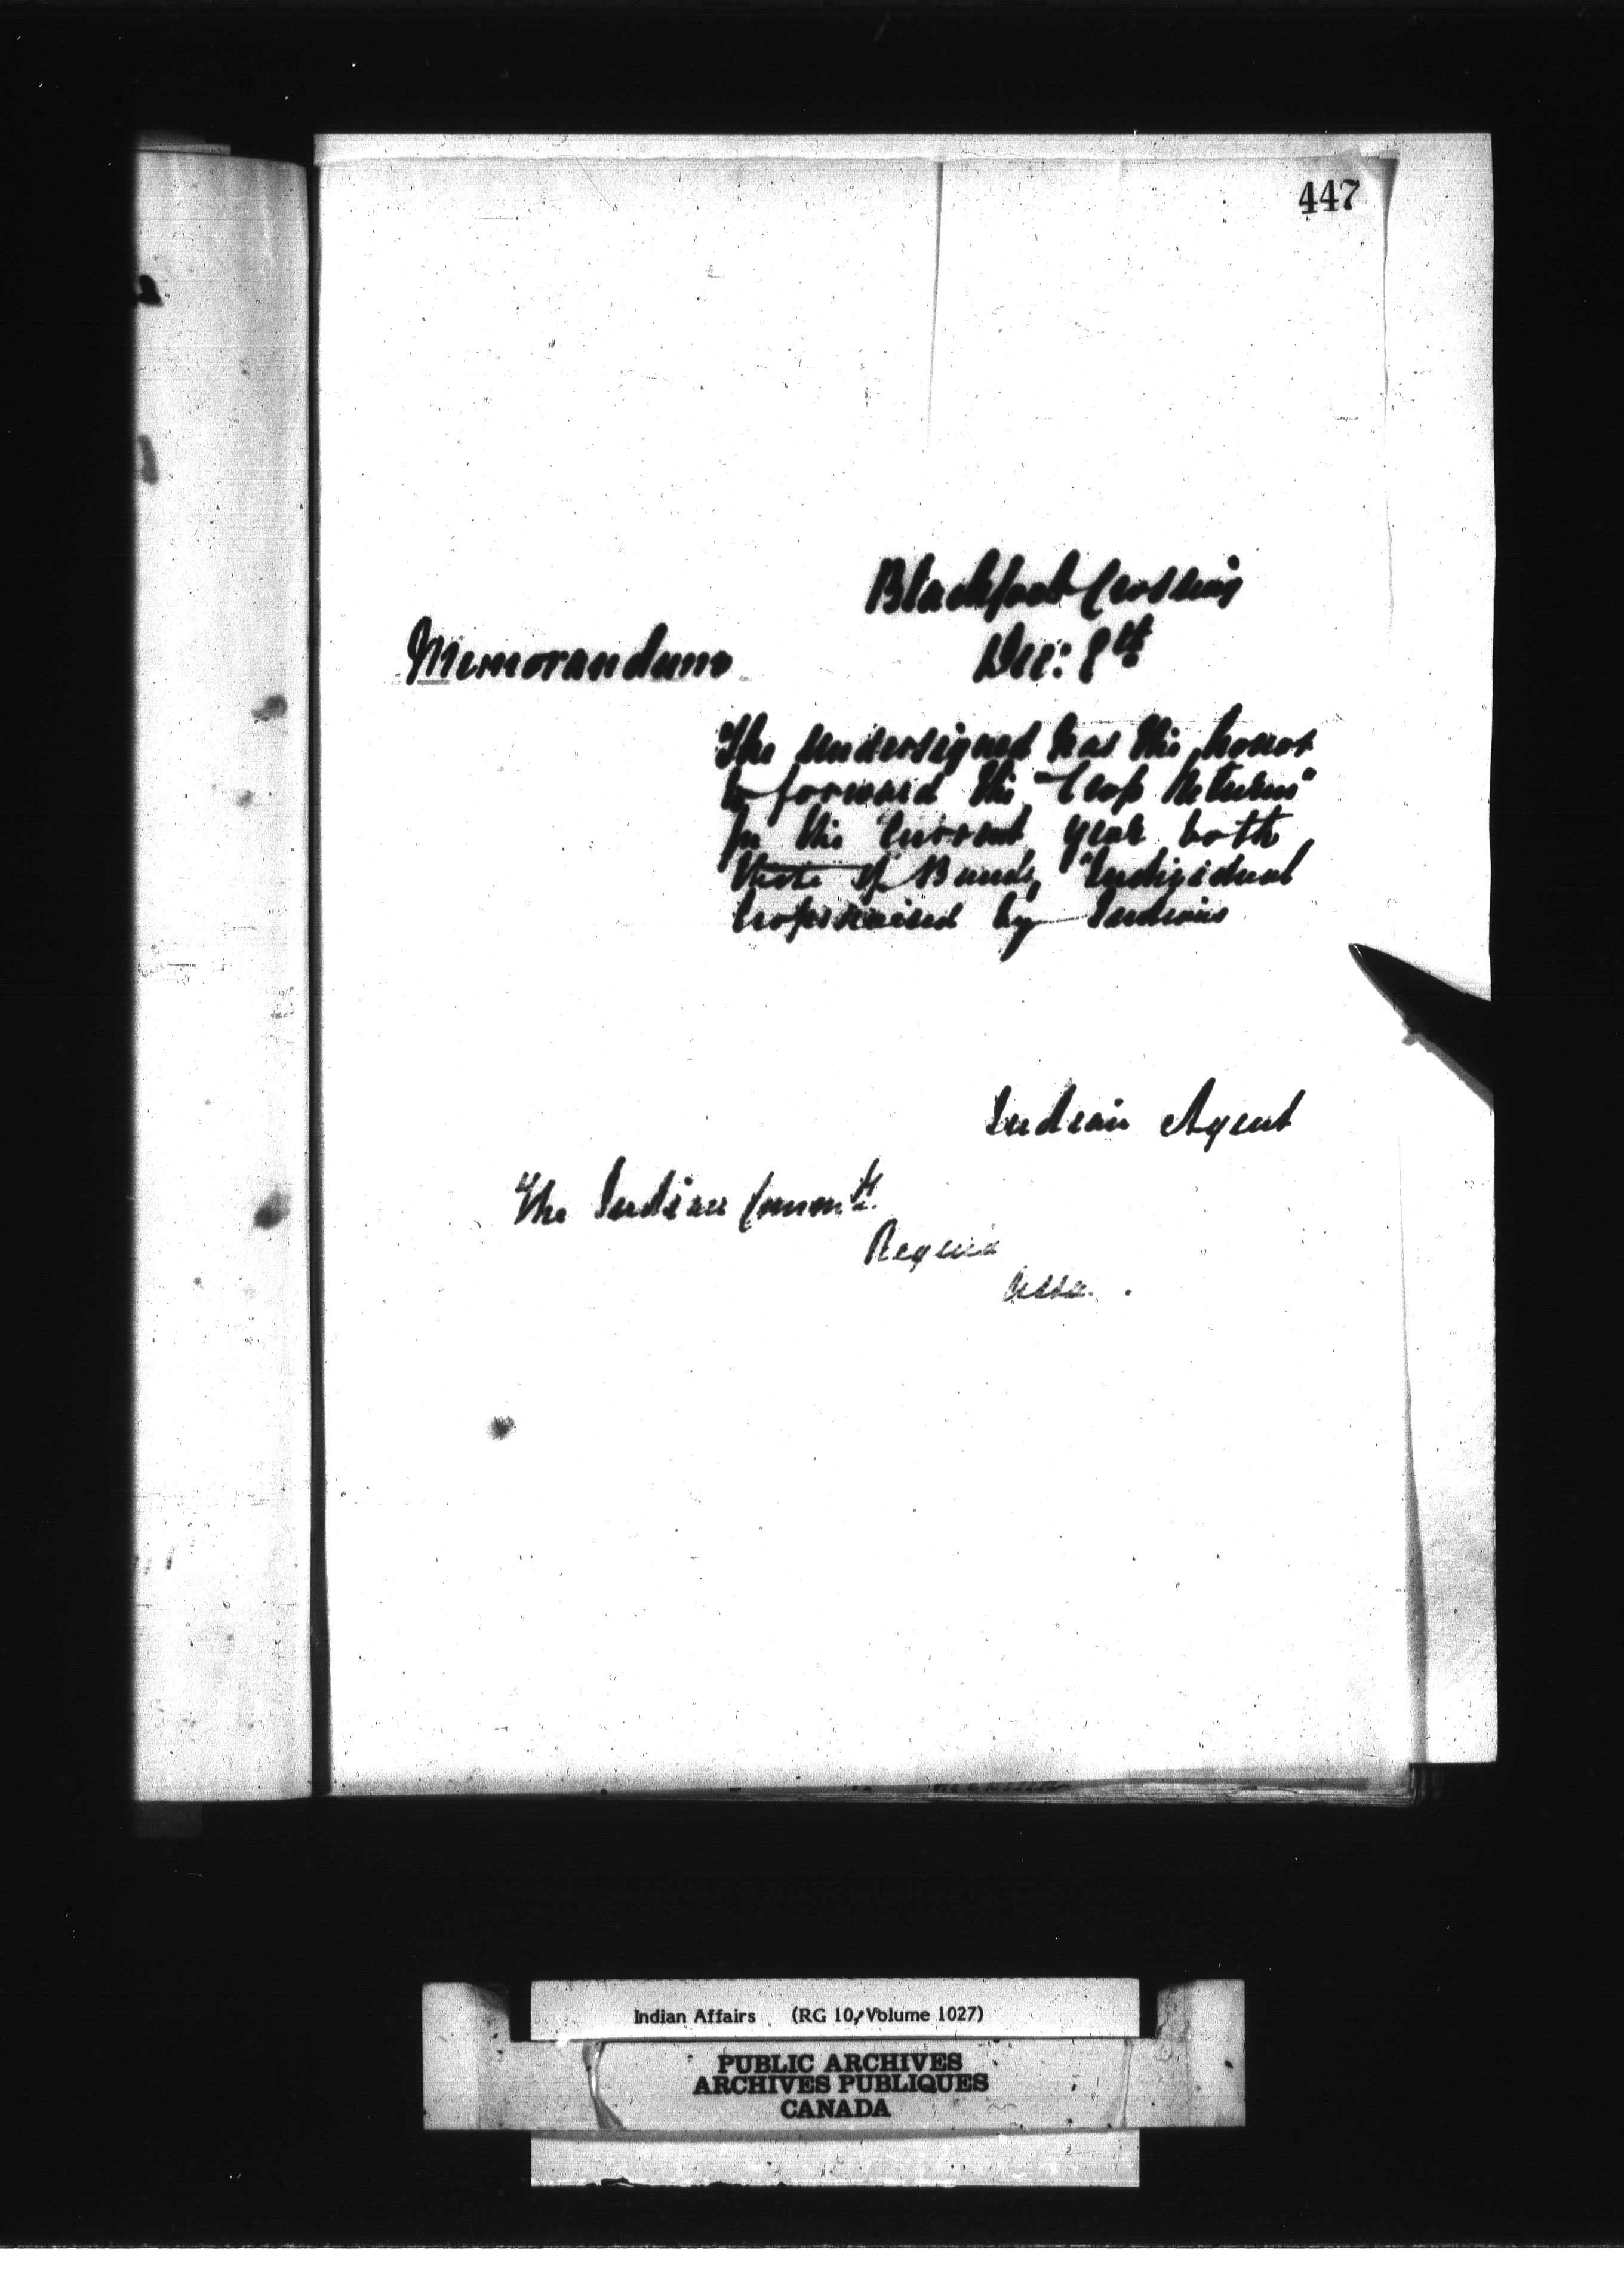 447
Blackfoot Crossing
Memorandum Dec: 8th
The undersigned has the honor
to forward the "Crop Returns"
for the current year both
of Bands, "Individual
Crops raised by Indians
Indian Agent
The Indian Commr.
Regina
Assa.
Indian Affairs (RG 10, Volume 1027)
PUBLIC ARCHIVES
ARCHIVES PUBLIQUES
CANADA